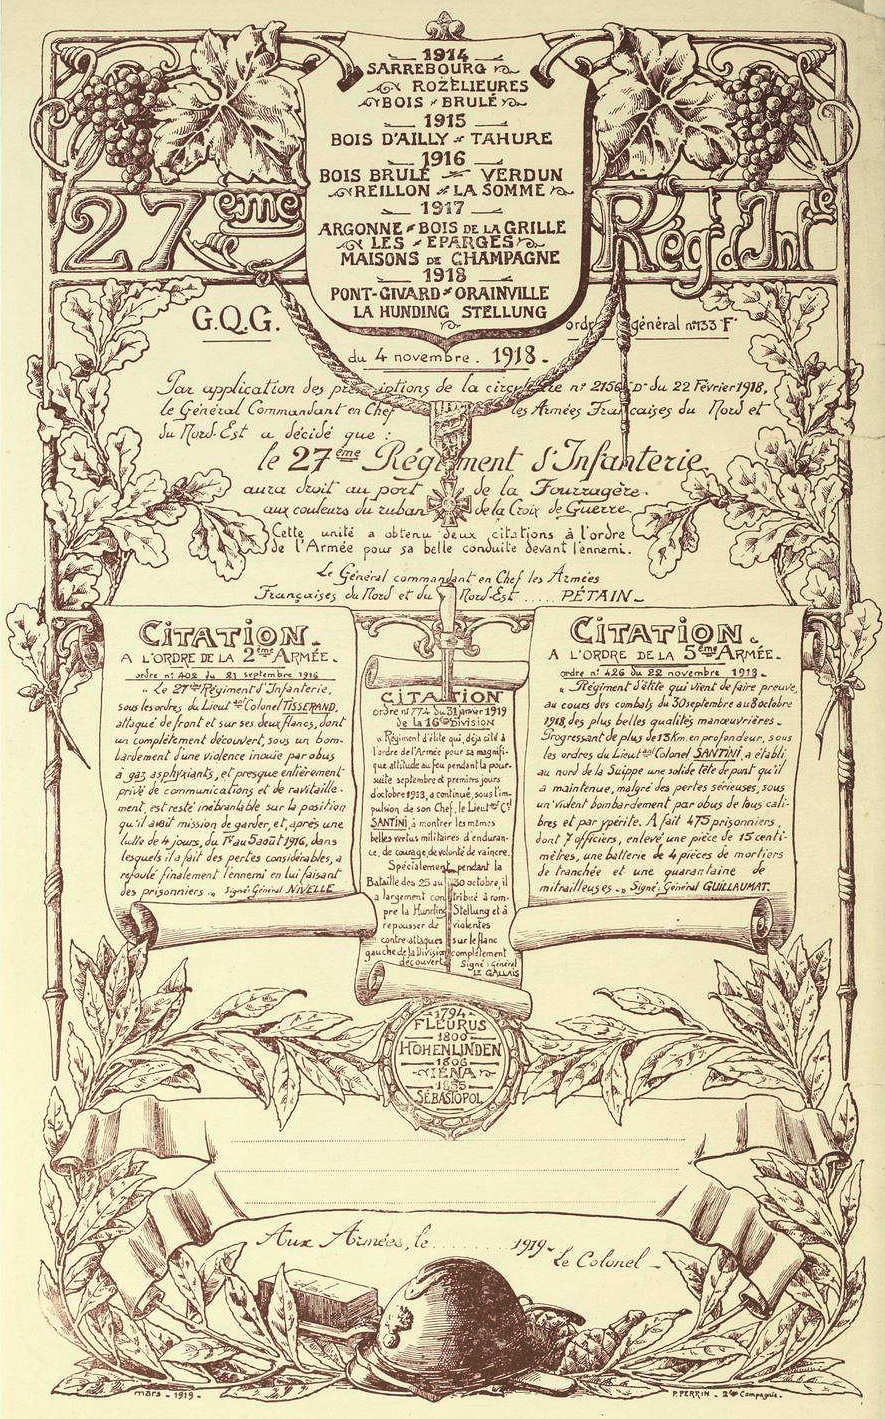 1914
SARREBOURG
ROZELIEURES
BOIS BRULÉ
1915
BOIS D'AILLY TAHURE
1916
BOIS BRULÉ VERDUN
REILLON LA SOMME
1917
ARGONNE BOIS DE LA GRILLE
LES ÉPARGES
MAISONS DE CHAMPAGNE
1918
PONT-GIVARD ORAINVILLE
LA HUNDING STELLUNG
27eme Rég. d'Infie
G.Q.G. ordre général n° 133 F
du 4 novembre. 1918.
Par application des prescriptions de la circulaire n° 2156 D du 22 Février 1918,
le Général Commandant en Chef les Armées Françaises du Nord et
du Nord-Est a décidé que :
le 27ème Régiment d'Infanterie
aura droit au port de la Fourragère.
aux couleurs du ruban de la Croix de Guerre
Cette unité a obtenu deux citations à l'ordre
de l'Armée pour sa belle conduite devant l'ennemi.
Le Général commandant en Chef les Armées
Françaises du Nord et du Nord-Est ..... PÉTAIN_
CITATION.
A L'ORDRE DE LA 2ème ARMÉE.
ordre n° 402 du 21 septembre 1916
« Le 27ème Régiment d'Infanterie,
sous les ordres du Lieut-Colonel TISSERAND,
attaqué de front et sur ses deux flancs, dont
un complètement découvert, sous un bom-
bardement d'une violence inouïe par obus
à gaz asphyxiants, et presque entièrement
privé de communications et de ravitaille-
ment, est resté inébranlable sur la position
qu'il avait mission de garder, et, après une
lutte de 4 jours, du 1er au 5 août 1916, dans
lesquels il a fait des pertes considérables, a
refoulé finalement l'ennemi en lui faisant
des prisonniers.» Signé: Général NIVELLE
CITATION
ordre n° 774 du 31 janvier 1919
de la 16e Division
« Régiment d'élite qui, déjà cité à
l'ordre de l'Armée pour sa magnifi-
que attitude au feu pendant la pour-
suite septembre et premiers jours
d'octobre 1918, a continué, sous l'im-
pulsion de son Chef, le Lieut-Cel
SANTINI, à montrer les mêmes
belles vertus militaires d'enduran-
ce, de courage, de volonté de vaincre.
Spécialement pendant la
Bataille des 25 au 30 octobre, il
a largement contribué à rom-
pre la Hunding Stellung et à
repousser de violentes
contre-attaques sur le flanc
gauche de la Division complètement
découvert. Signé: Général
LE GALLAIS
CITATION.
A L'ORDRE DE LA 5ème ARMÉE.
ordre n° 426 du 22 novembre 1918.
« Régiment d'élite qui vient de faire preuve,
au cours des combats du 30 septembre au 8 octobre
1918, des plus belles qualités manœuvrières.
Progressant de plus de 13 Km. en profondeur, sous
les ordres du Lieut-Colonel SANTINI, a établi
au nord de la Suippe une solide tête de pont qu'il
a maintenue, malgré des pertes sérieuses, sous
un violent bombardement par obus de tous cali-
bres et par ypérite. A fait 475 prisonniers,
dont 7 officiers, enlevé une pièce de 15 centi-
mètres, une batterie de 4 pièces de mortiers
de tranchée et une quarantaine de
mitrailleuses.» Signé: Général GUILLAUMAT.
1794
FLEURUS
1800
HOHENLINDEN
1806
IÉNA
1855
SÉBASTOPOL
Aux Armées, le.........1919.
Le Colonel
mars. 1919. P. PERRIN. 2e Compagnie.